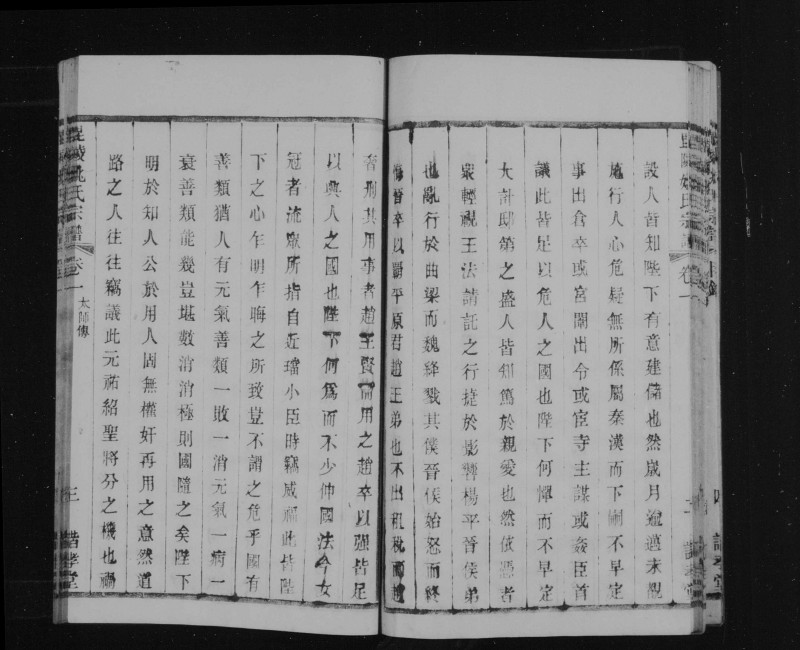 設人皆知陛下有意建儲也然歲月逾邁未覩
施行人心危疑無所係屬秦漢而下嗣不早定
事出倉卒或宮闈出令或宦寺主謀或姦臣首
議此皆足以危人之國也陛下何憚而不早定
大計邸第之盛人皆知篤於親愛也然依憑者
衆輕視王法請託之行捷於影響楊干晉侯弟
也亂行於曲梁而魏絳戮其僕晉侯始怒而終
悔晉卒以霸平原君趙王弟也不出租稅而趙
奢刑其用事者趙王賢而用之趙卒以强皆足
以興人之國也陛下何爲而不少伸國法今女
冠者流衆所指自近璫小臣時竊威福此皆陛
下之心乍明乍晦之所致豈不謂之危乎國有
善類猶人有元氣善類一敗一消元氣一病一
衰善類能幾豈堪數消消極則國隨之矣陛下
明於知人公於用人固無權奸再用之意然道
路之人往往竊議此元祐紹聖將分之機也禍
毘陵姚氏宗譜
卷一
太師傳
三
惜孝堂